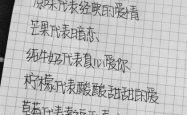 原味代表经典的爱情
芒果代表暗恋
纯牛奶代表真心爱你
柠檬代表酸酸甜甜的爱
草莓代表